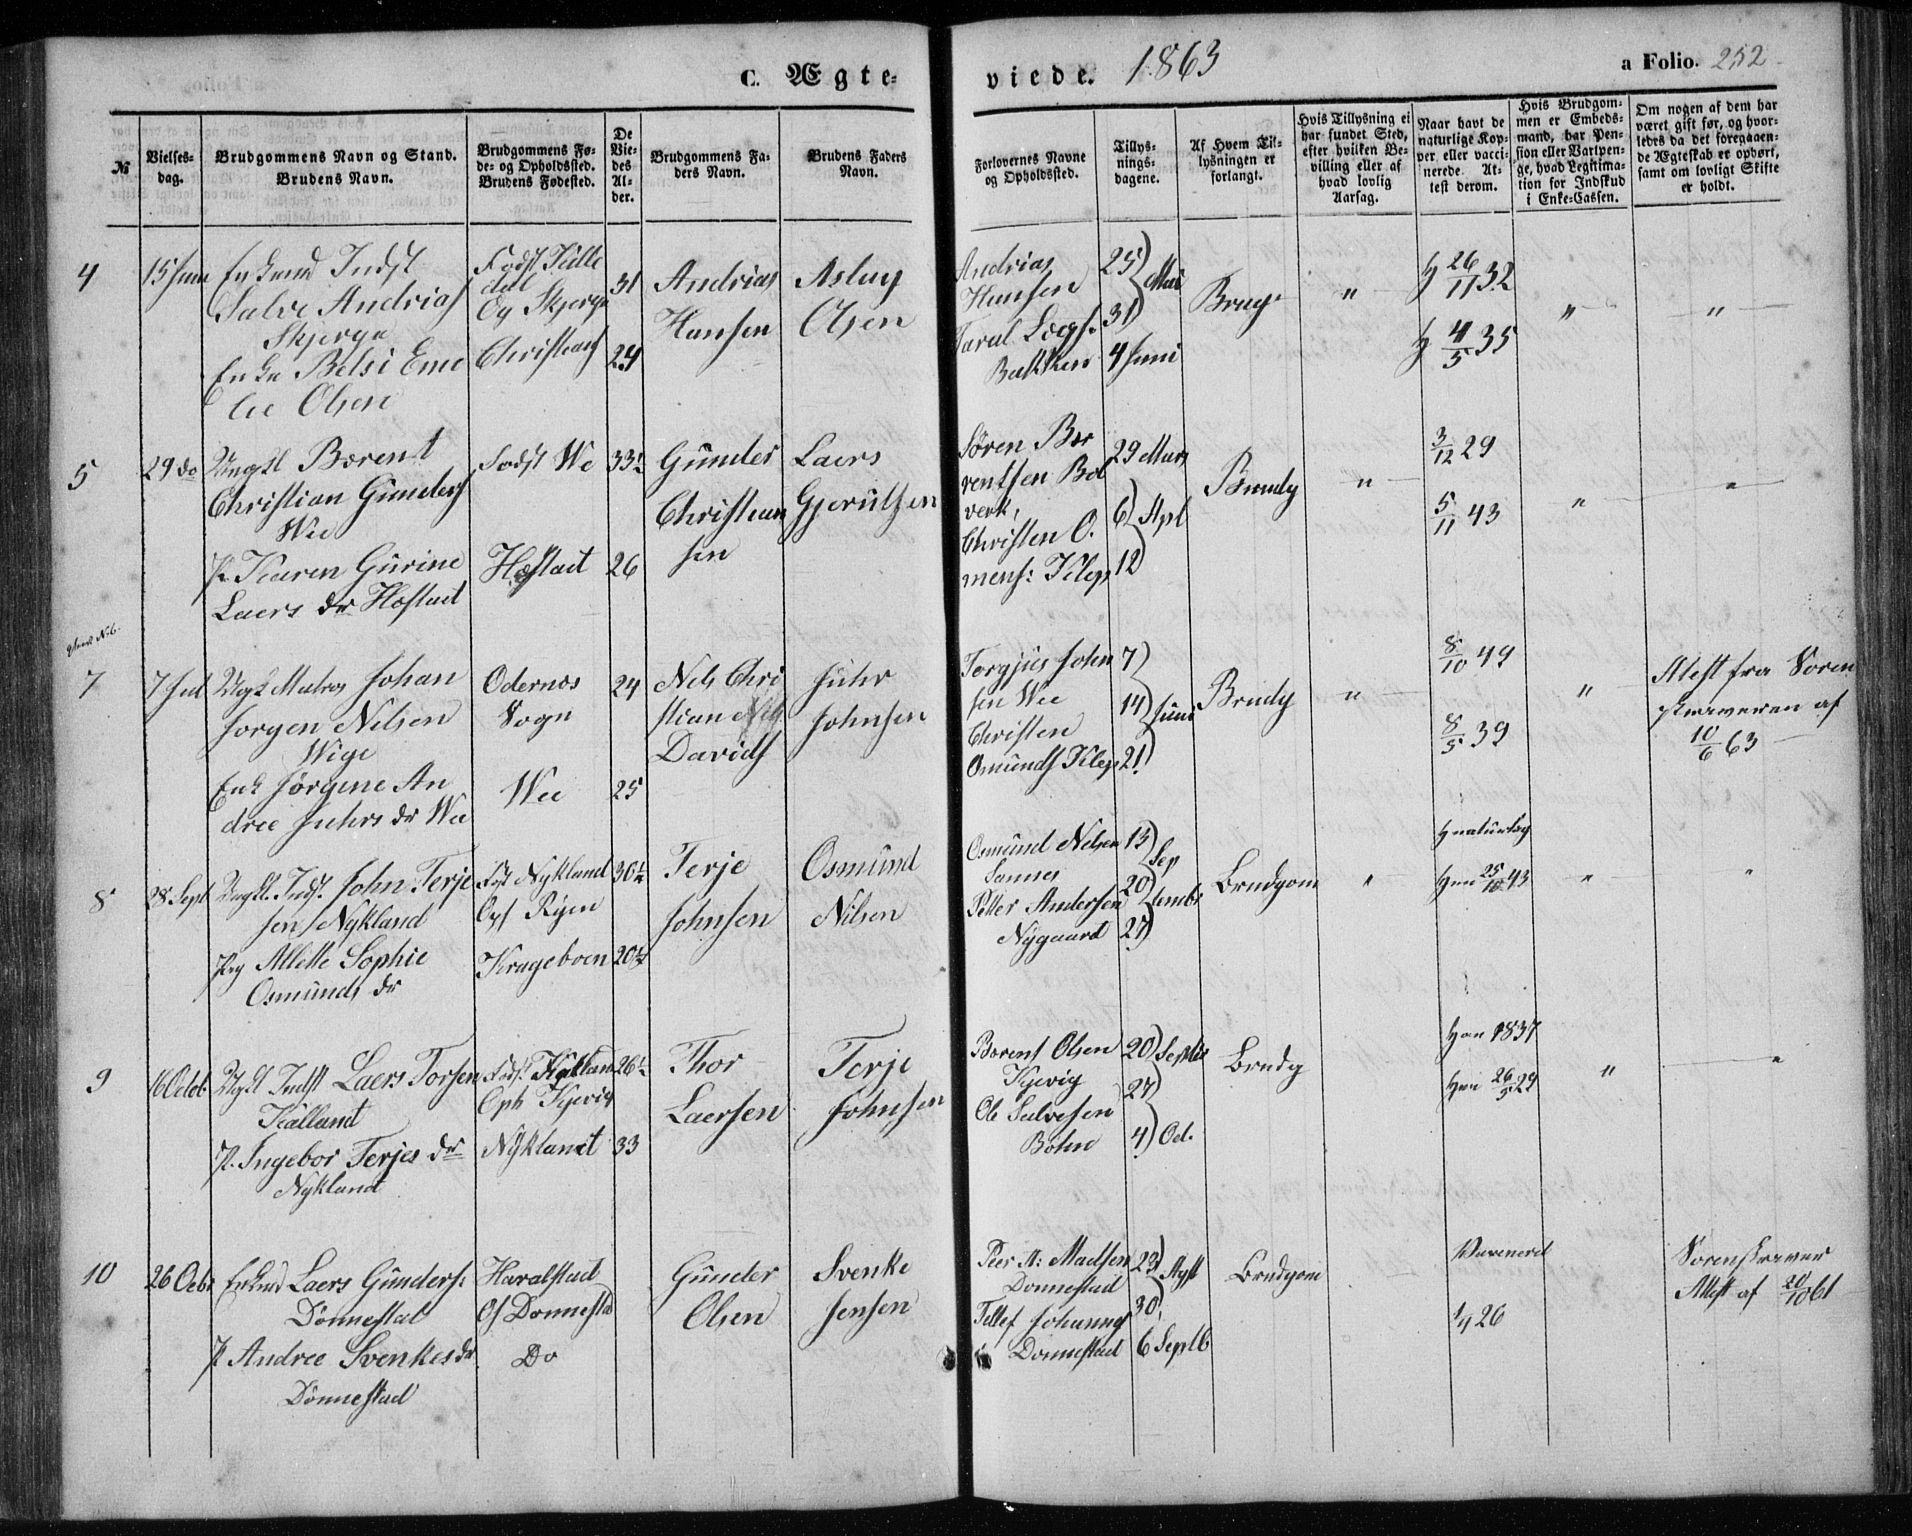 C. Ægte-
viede. 1863
a Folio. 252
№
Vielses-
dag.
Brudgommens Navn og Stand.
Brudens Navn.
Brudgommens Fø-
de- og Opholdssted.
Brudens Fødested.
De
Vie-
des
Al-
der.
Brudgommens Fa-
ders Navn.
Brudens Faders
Navn.
Forlovernes Navne
og Opholdssted.
Tillys-
nings-
dagene.
Af Hvem Til-
lysningen er
forlangt.
Hvis Tillysning ei
har fundet Sted,
efter hvilken Be-
villing eller af
hvad lovlig
Aarsag.
Naar havt de
naturlige Kop-
per, eller vacci-
nerede. At-
test derom.
Hvis Brudgom-
men er Embeds-
mand, har Pen-
sion eller Vartpen-
ge, hvad Legitima-
tion for Indskud
i Enke-Cassen.
Om nogen af dem har
været gift før, og hvor-
ledes da det foregaaen-
de Ægteskab er ophørt,
samt om lovligt Skifte
er holdt.
4
15 Juni
Enkemd Indst
Salve Andrias
Skjerge
Enke Betsi Eme
lie Olsen
Født Tulle
dal
Og Skjerge
Christians
31
24
Andrias
Hansen
Aslag
Olsen
Andrias
Hansen
Taral Legs.
Bakken
25
31
Mai
4 Juni
Brudg
"
26/11 32
4/5 35
"
"
5
29 do
Ungkl Bærent
Christian Gunders
Wee
P. Karen Gurine
Laers dr Hæstad
Født We
Hæstad
33 1/2
26
Gunder
Christian
sen
Laers
Gjerulfsen
Søren Bær
rentsen Bol
verk,
Christen O.
mens: Klep
29 Mars
6
Apl
12
Brudg
"
3/12 29
5/11 43
"
"
7
7 Jul
Ungk Matros Johan
Jorgen Nilsen
Wige
Enk Jörgine An
drea Juhrs dr Wee
Odernæs
Sogn
Wee
24
25
Nils Chri
stian Nils
Davids
Juhr
Johnsen
Torgjus John
sen Wee
Christen
Omunds Klep
7
14
Juni
21
Brudg
"
8/10 49
8/5 39
"
Atest fra Soren
skriveren af
10/6 63
8
28 Sept
Ungkl. Indst. John Terje
sen Nykland
Pig Allette Sophie
Osmunds dr
Født Nykland
Oph Rÿen
Krageboen
30 1/2
20 1/2
Terje
Johnsen
Osmund
Nilsen
Osmund Nilsen
Sannes
Petter Andersen
Nÿgaard
13
Sep
20
tembr
27
Brudgom
"
H naturlig
Hun 25/10 43
"
"
9
16 Octob
Ungkl Indst Laers Torsen
Kalland
P. Ingebor Terjes dr
Nÿkland
Født Kalland
Oph Kjevig
Nÿkland
26 1/2
33
Thor
Laersen
Terje
Johnsen
Borent Olsen
Kjevig
Ole Salvesen
Bohn
20
Septbr
27
4
Oct.
Brudg
Han 1837
Hun 26/5 29
"
"
10
26 Octbr
Enkmd Laers Gunders:
Dönnestad
P Andree Svenkes dr
Dönnestad
Haralstad
Op Donnestad
Do
Gunder
Olsen
Svenke
Jensen
Peer A: Madsen
Donnestad
Tellef Johanns
Donnestad
23
Agst
30
6 Septb
Brudgom
Vaxenerd
1/4 26
Sorenskriver
Attest af 20/10 61